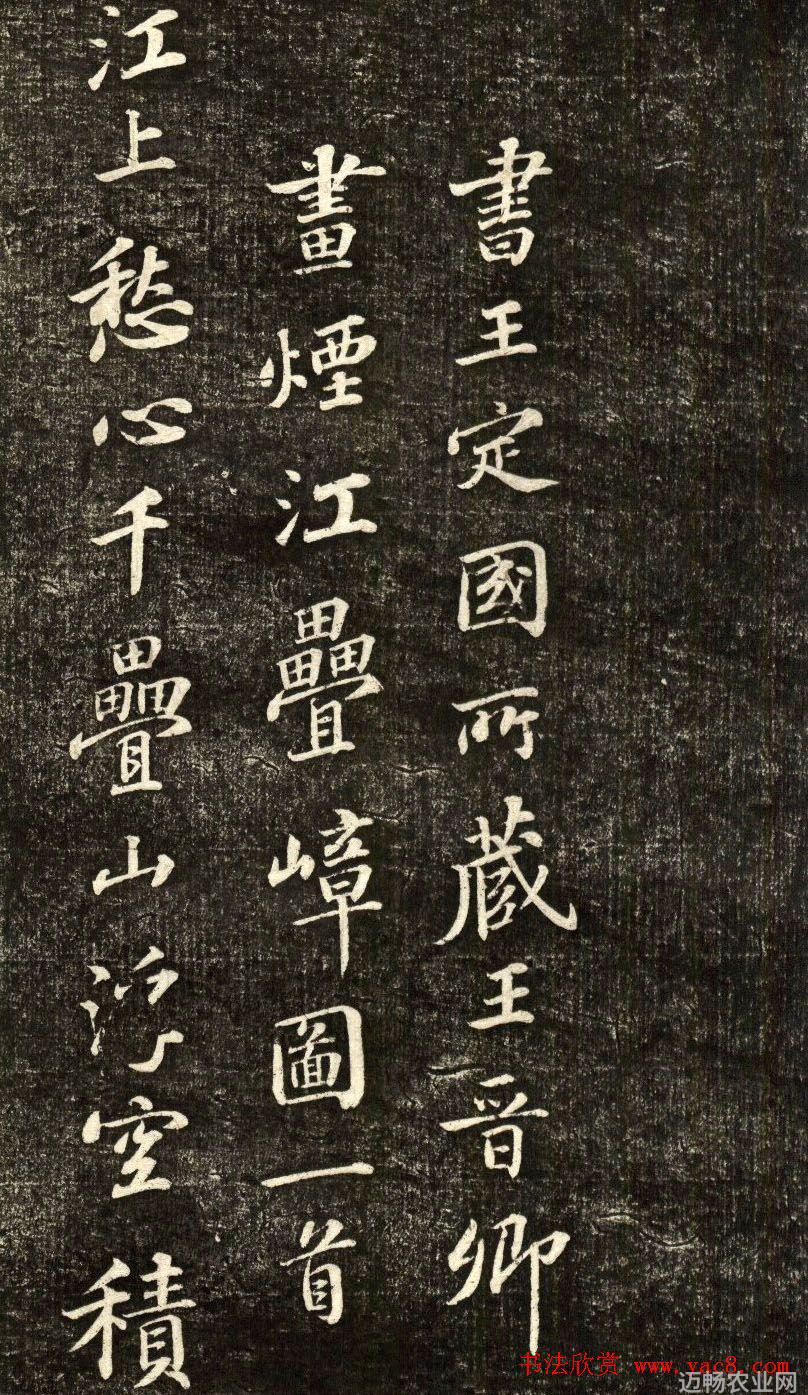 書王定國所蔵王晉卿
畫煙江疊嶂圖一首
江上愁心千疊山浮空積
书法欣赏 www.yac8.com
迈畅农业网